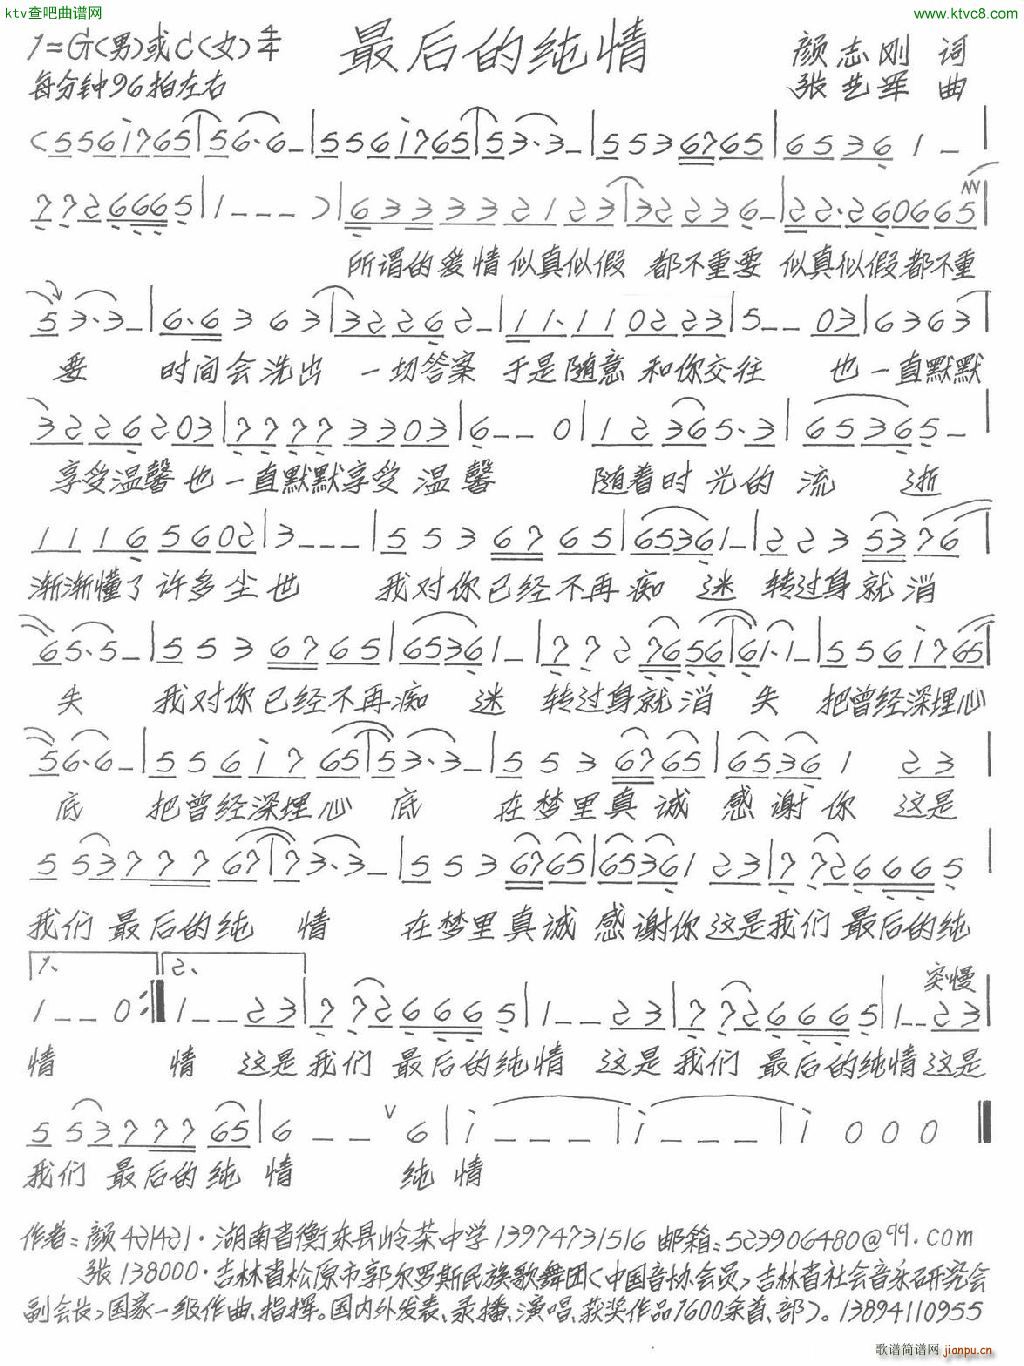 ktv查吧曲谱网 www.ktvc8.com
1=G(男)或C(女) 4/4 最后的纯情 颜志刚 词
每分钟96拍左右 张艺军 曲
所谓的爱情似真似假 都不重要 似真似假都不重
要 时间会洗出 一切答案 于是随意 和你交往 也一直默默
享受温馨也一直默默享受 温馨 随着时光的流 逝
渐渐懂了许多尘世 我对你已经不再痴 迷 转过身就消
失 我对你已经不再痴 迷 转过身就消 失 把曾经深埋心
底 把曾经深埋心 底 在梦里真诚 感谢你 这是
我们 最后的纯 情 在梦里真诚 感谢你这是我们 最后的纯
1、 2、 突慢
情 情 这是我们 最后的纯情 这是我们 最后的纯情这是
我们 最后的纯 情 纯情
作者：颜421421·湖南省衡东县岭茶中学13974731516 邮箱：523906480@qq.com
张138000·吉林省松原市郭尔罗斯民族歌舞团〈中国音协会员〉吉林省社会音乐研究会
副会长〉国家一级作曲、指挥。国内外发表、录播、演唱、获奖作品1600余首、部〉。13894110955
歌谱简谱网 jianpu.cn